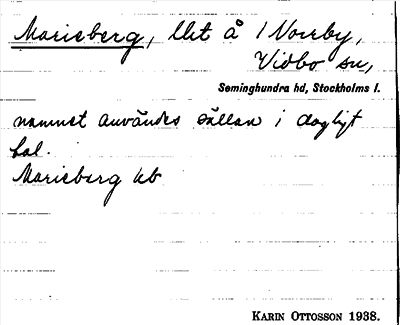 Marieberg, lht å 1 Norrby,
Vidbo sn,
Seminghundra hd, Stockholms l.
namnet användes sällan i dagligt
tal.
Marieberg kb
KARIN OTTOSSON 1938.